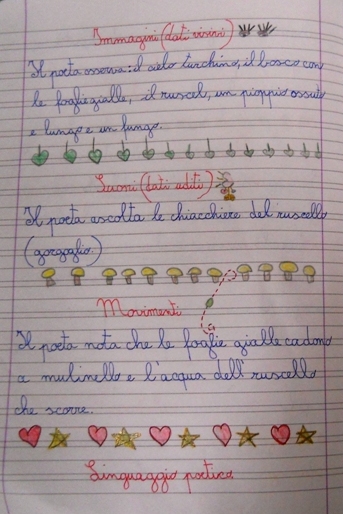 Immagini (dati visivi)
Il poeta osserva: il cielo turchino, il bosco con
le foglie gialle, il ruscel, un pioppo ossuto
e lungo e un lungo.
Suoni (dati uditi)
Il poeta ascolta le chiacchiere del ruscello
(gorgoglio).
Movimenti
Il poeta nota che le foglie gialle cadono
a mulinello e l'acqua dell'ruscello
che scorre.
Linguaggio poetico.